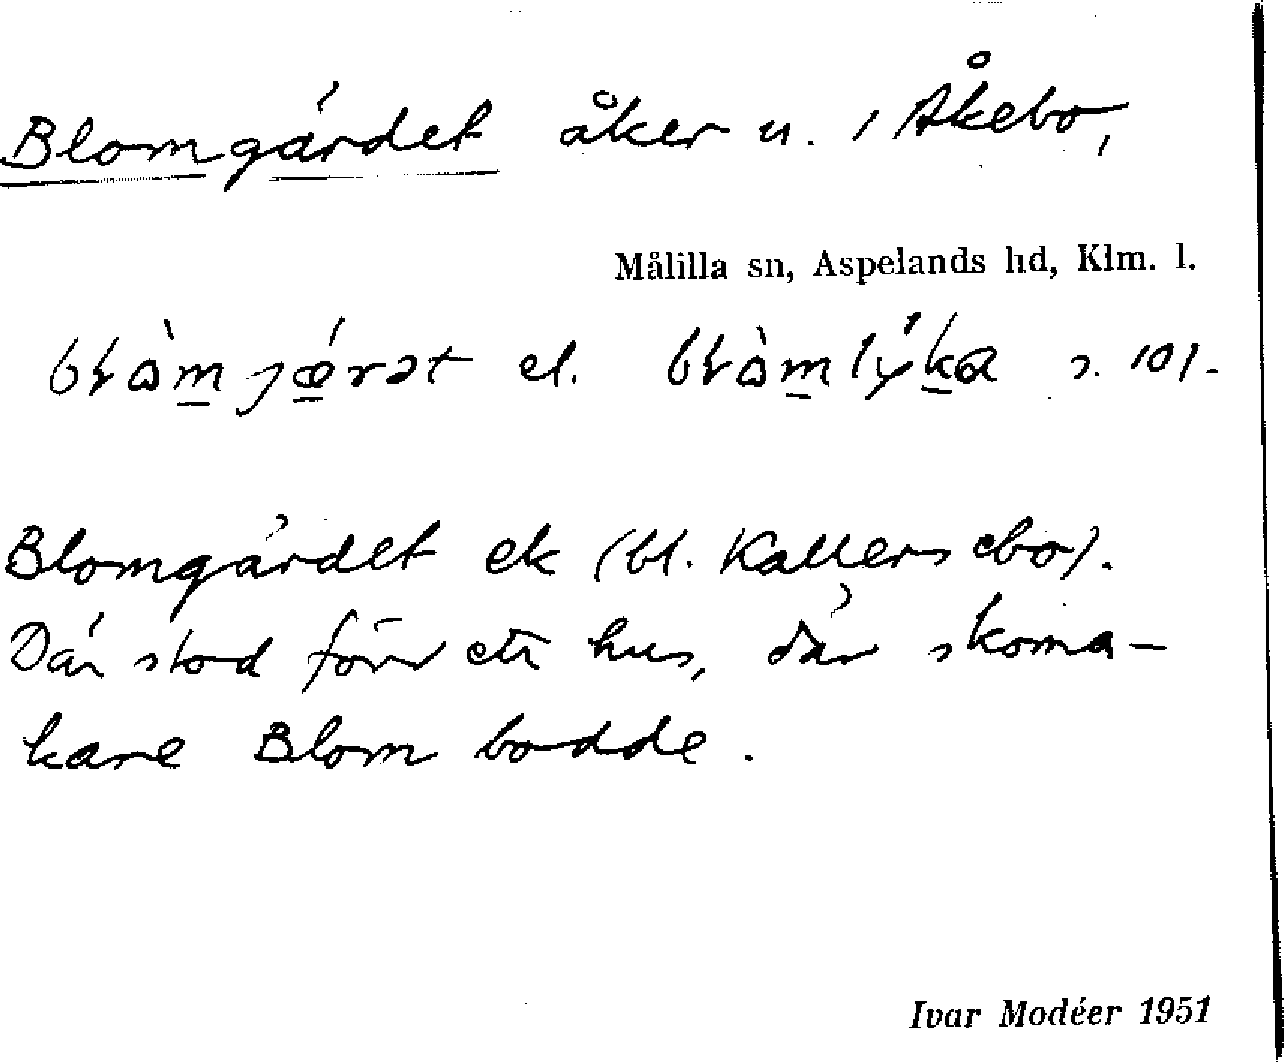 Blomgärdet åker u. i Åkebo,
Målilla sn, Aspelands hd, Klm. l.
el. s. 101.
Blomgärdet ek (bl. Kallersebo).
Där stod förr ett hus, där skoma-
kare Blom bodde.
Ivar Modéer 1951